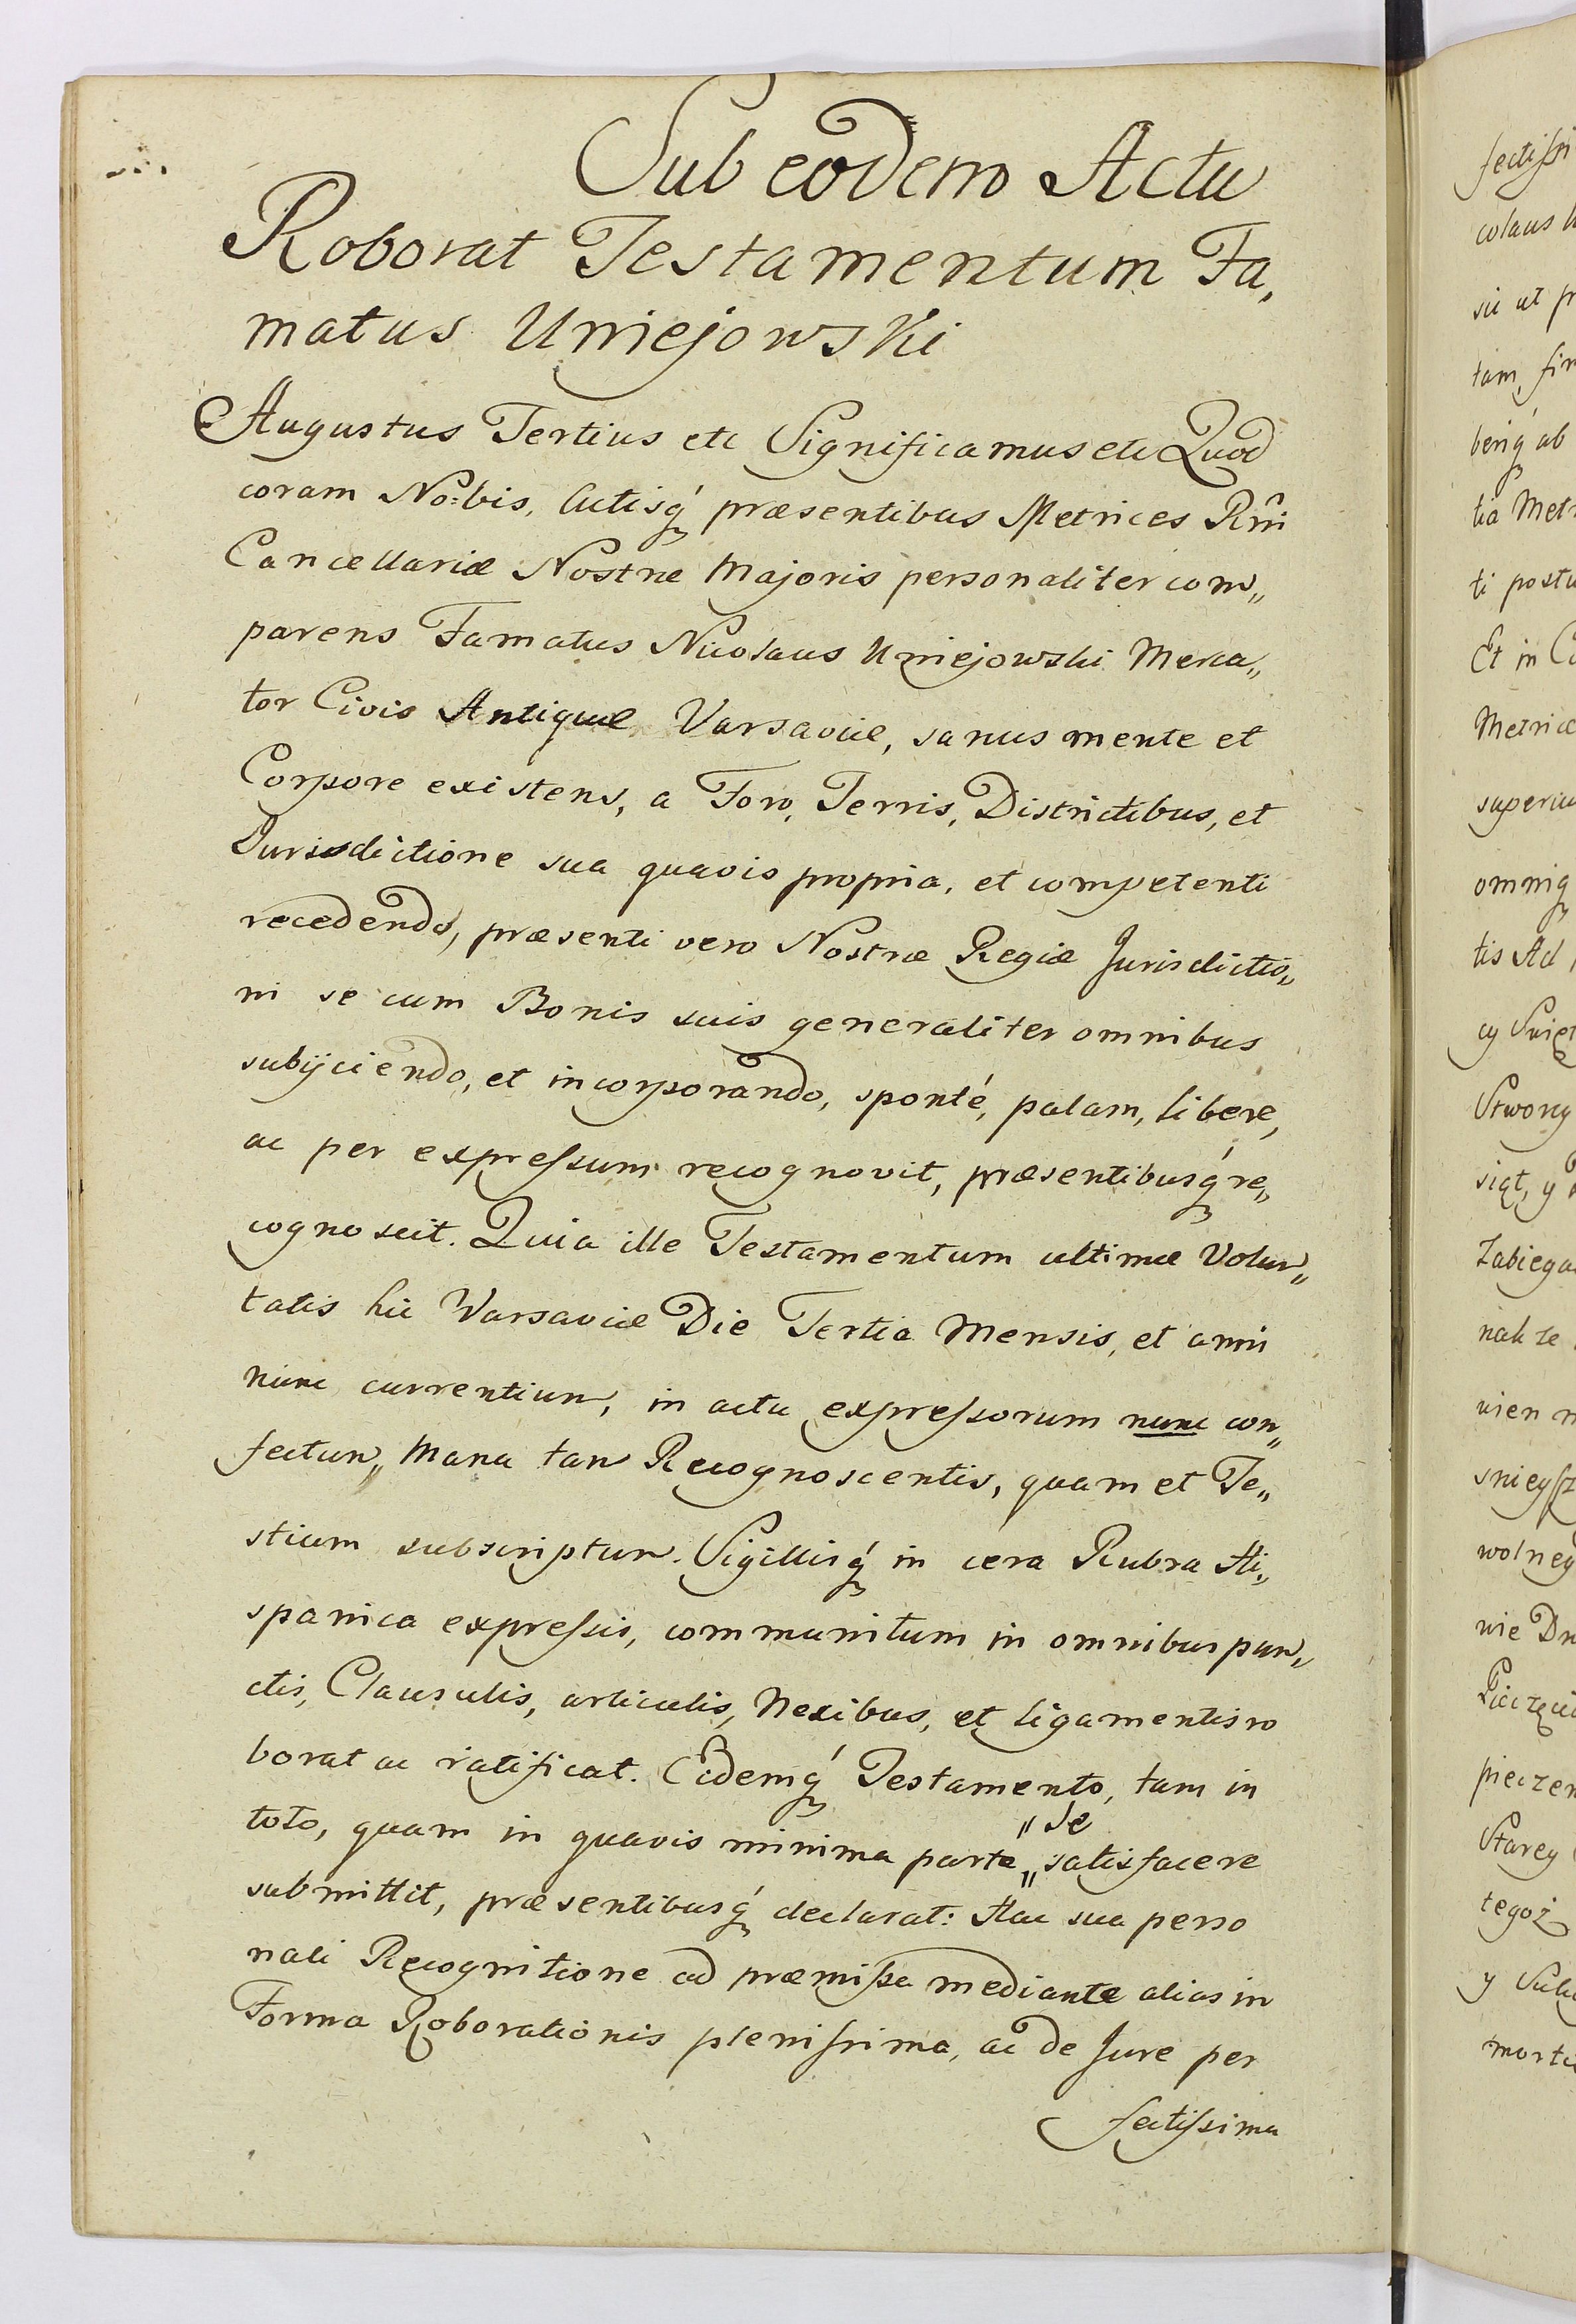 Sub eodem Actu
Roborat Testamentum Fa,
matus Uniejowski
Augustus Tertius etc Significamus etc Quod
coram No=bis, Actisq́ præsentibus Metrices Rñi
Cancellariæ Nostræ Majoris personaliter com„
parens Famatus Nicolaus Uniejowski Merca„
tor Civis Antiquæ Varsaviæ, sanus mente et
Corpore existens, a Foro, Terris, Districtibus, et
Jurisdictione sua quavis propria, et competenti
recedendo, præsenti vero Nostræ Regiæ Jurisdictio„
ni se cum Bonis suis generaliter omnibus
subijciendo, et incorporando, sponté, palam, libere,
ac per expressum recognovit, præsentibusq́ re„
cognoscit. Quia ille Testamentum ultimæ Volun„
tatis hic Varsaviæ Die Tertia Mensis, et anni
nunc currentium, in actu expressorum nunc con„
fectum„ Manu tam Recognoscentis, quam et Te„
stium subscriptum. Sigillisq́ in cera Rubra Hi„
spanica expressis, communitum in omnibus pun„
ctis, Clausulis, articulis, Nexibus, et ligamentis ro
borat ac ratificat. Eidemq́ Testamento, tam in
toto, quam in quavis minima parte„ satisfacere
„se
submittit, præsentibusq́ declarat: Hac sua perso
nali Recognitione ad præmissa mediante alias in
Forma Roborationis plenissima, ac de Jure per
fectissima
fectissi
colaus U
sic ut pr
tam, fir
beriq́ ab
tia Metr
ti postu
Et in C
Metricæ
superiu
omniq
tis Act
cy Swięt
Stwory
siąt, y
Zabiega
nak ze
nien n
snieyſz
wolney
nie Dn
Piecięci
pieczen
Starey
tegoż
y Suk
mortu